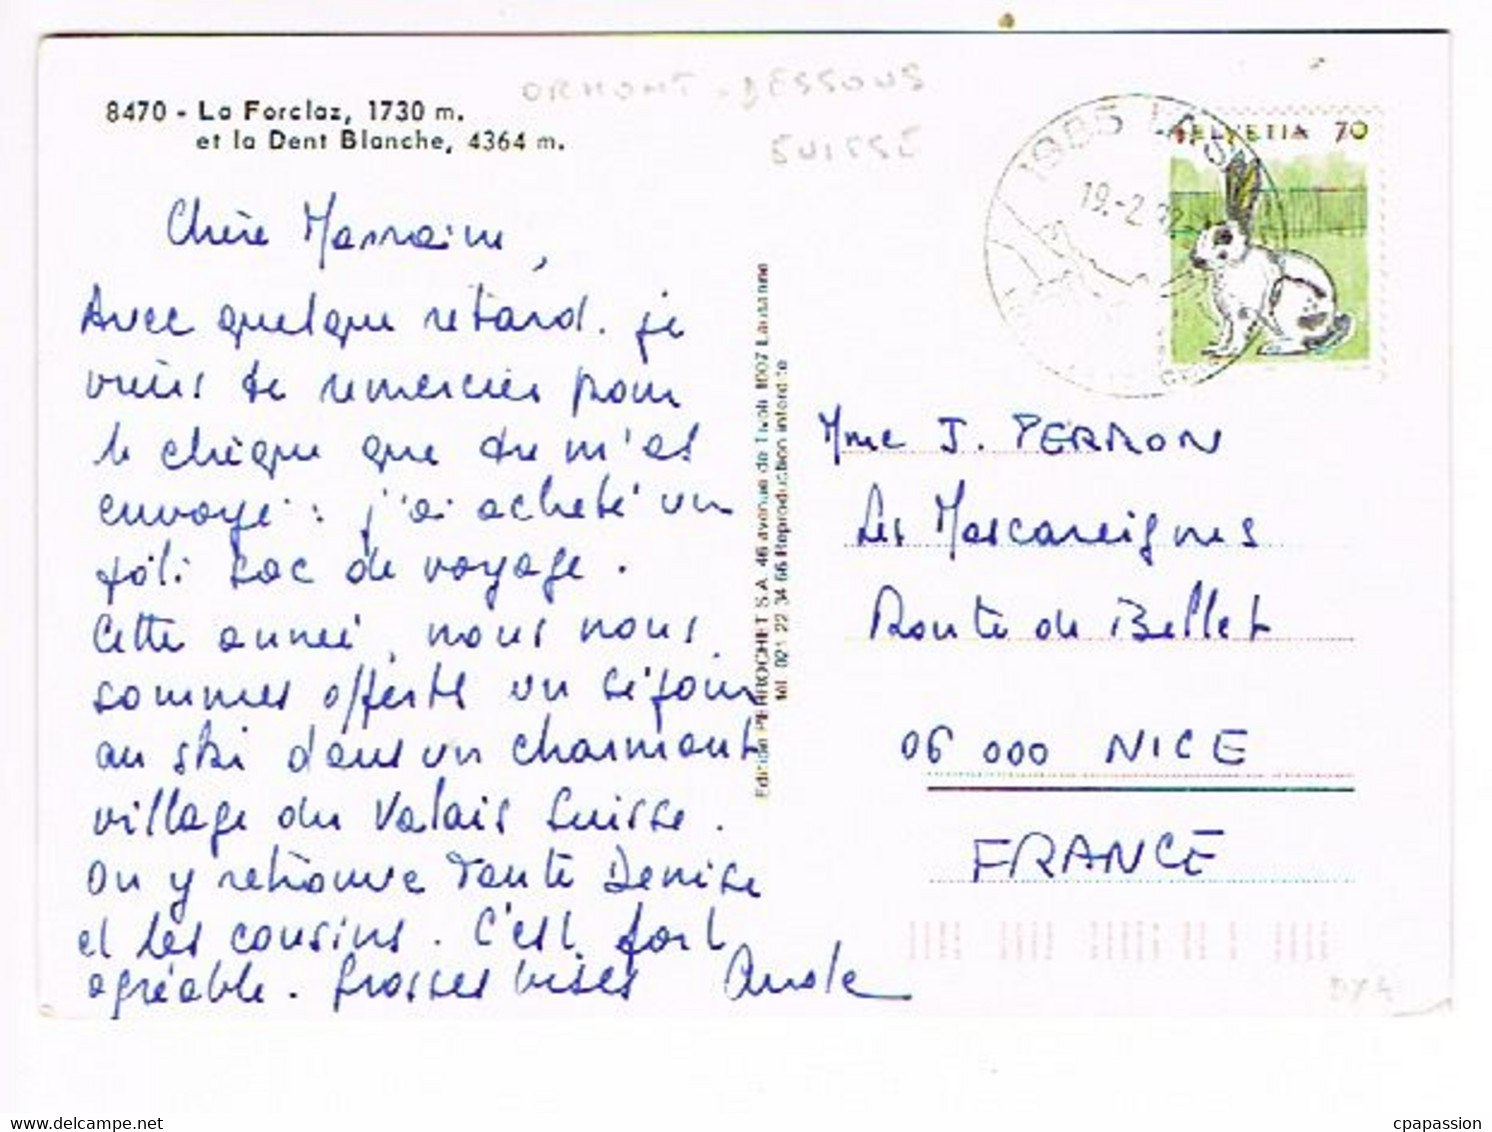 8470 - La Forclaz, 1730 m.
et la Dent Blanche, 4364 m.
ORMONT-DESSOUS
SUISSE
1985 LA S
19.-2.92
HELVETIA 70
Chère Marraine,
Avec quelque retard. je
viens te remercier pour
le chèque que tu m'as
envoyé : j'ai acheté un
joli sac de voyage.
Cette année, nous nous
sommes offerts un séjour
au ski dans un charmant
village du Valais Suisse.
On y retrouve Tante Denise
et les cousins. C'est fort
agréable. Grosses bises
Edition PERROCHET S.A. 46 avenue de Tivoli 1007 Lausanne
tél. 021 22 34 66 Reproduction interdite
Mme J. PERRON
Les Mascareignes
Route de Bellet
06 000 NICE
FRANCE
cpapassion